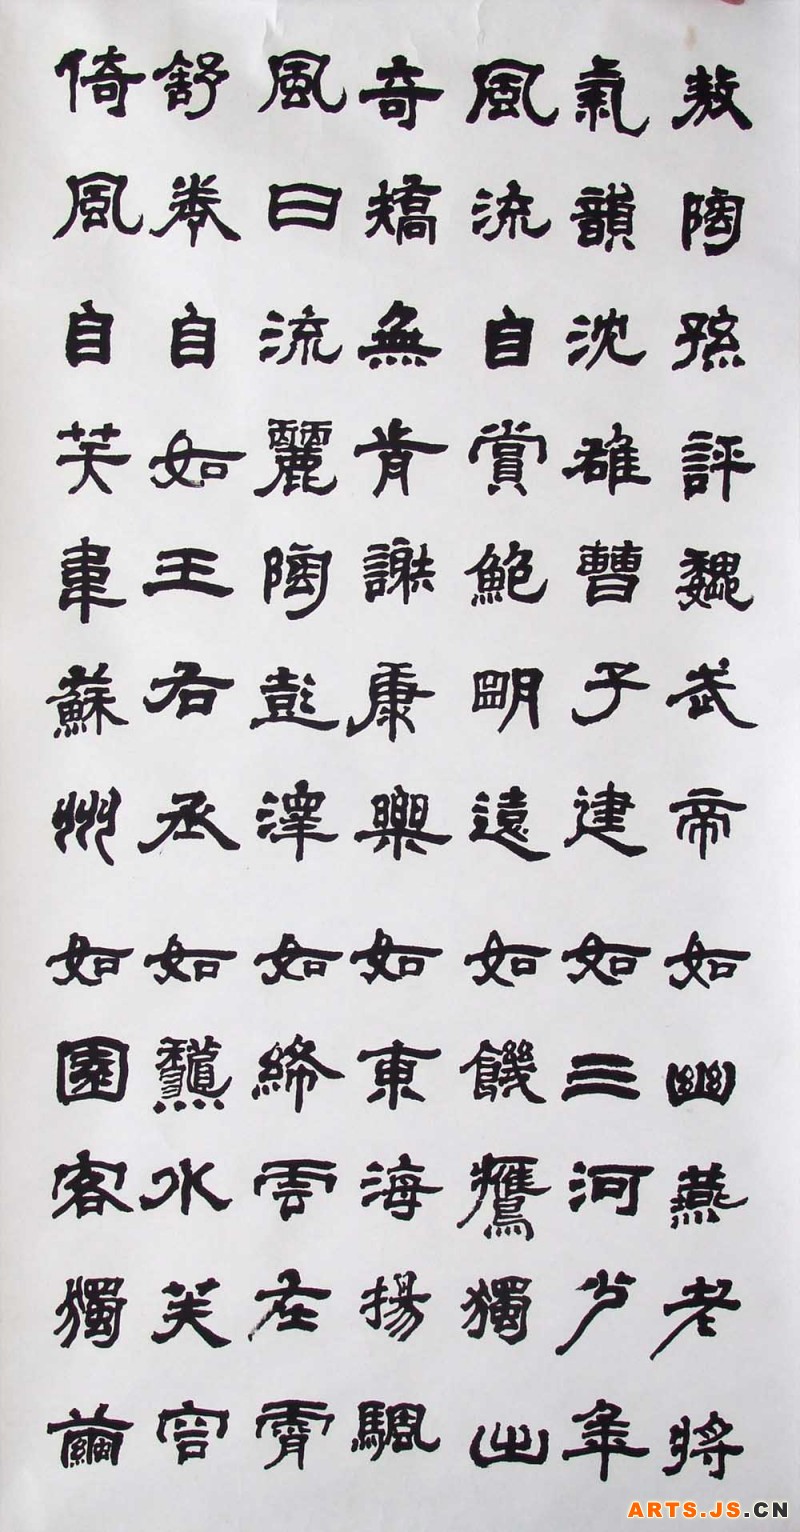 敖陶孫評魏武帝如幽燕老將
氣韻沈雄曹子建如三河少年
風流自賞鮑明遠如饑鷹獨出
奇矯無前謝康樂如東海揚颿
風日流麗陶彭澤如絳雲在霄
舒卷自如王右丞如龝水芙容
倚風自笑韋蘇州如園客獨繭
ARTS.JS.CN